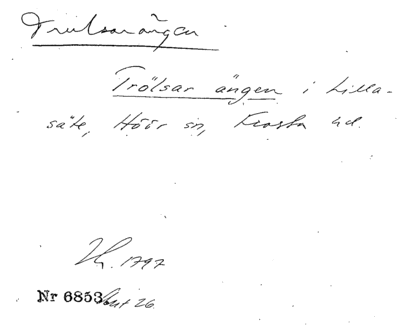 Trulsarängen
Trölsar ängen i Lilla-
säte, Höör sn, Frosta hd.
Lh. 1797
Nr 6853 26.